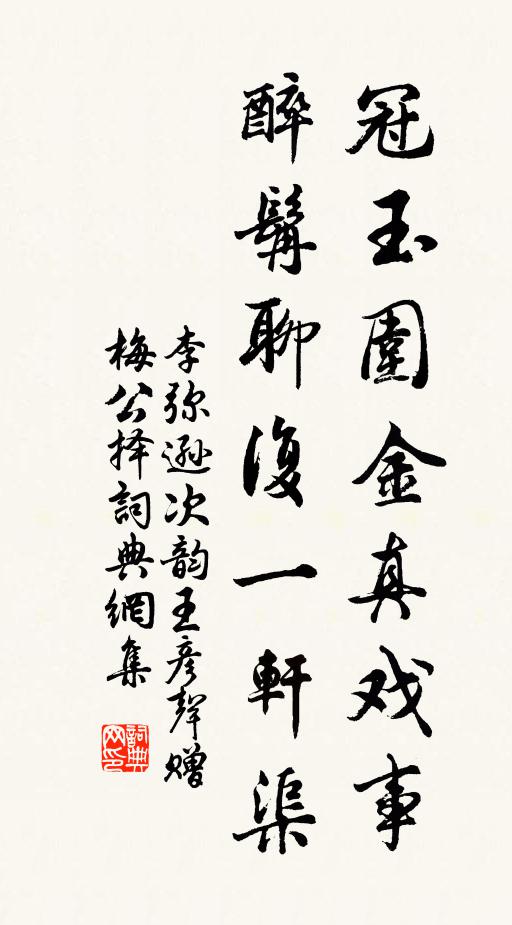 冠玉圍金真戏事
醉髯聊復一軒渠
李弥遜次韵王彦聲赠
梅公择詞典網集
詞典网印